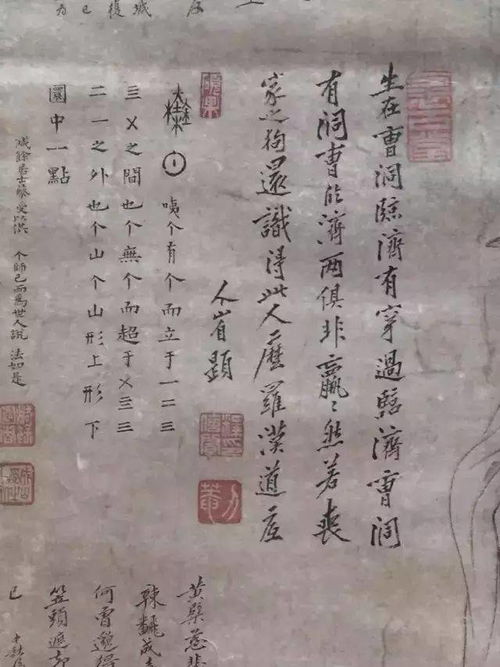 生在曹洞臨濟有穿過臨濟曹洞
有洞曹臨濟兩俱非羸〻然若喪
家之狗還識得此人麼羅漢道底
咦个有个而立于一二三
亖㐅之間也个無个而超于㐅亖三
二一之外也个山个山形上形下
圜中一點
減餘居士蔡受以供个師已而為世人說法如是
黃檗慈悲
何曾邈得
笠頭遮却
已